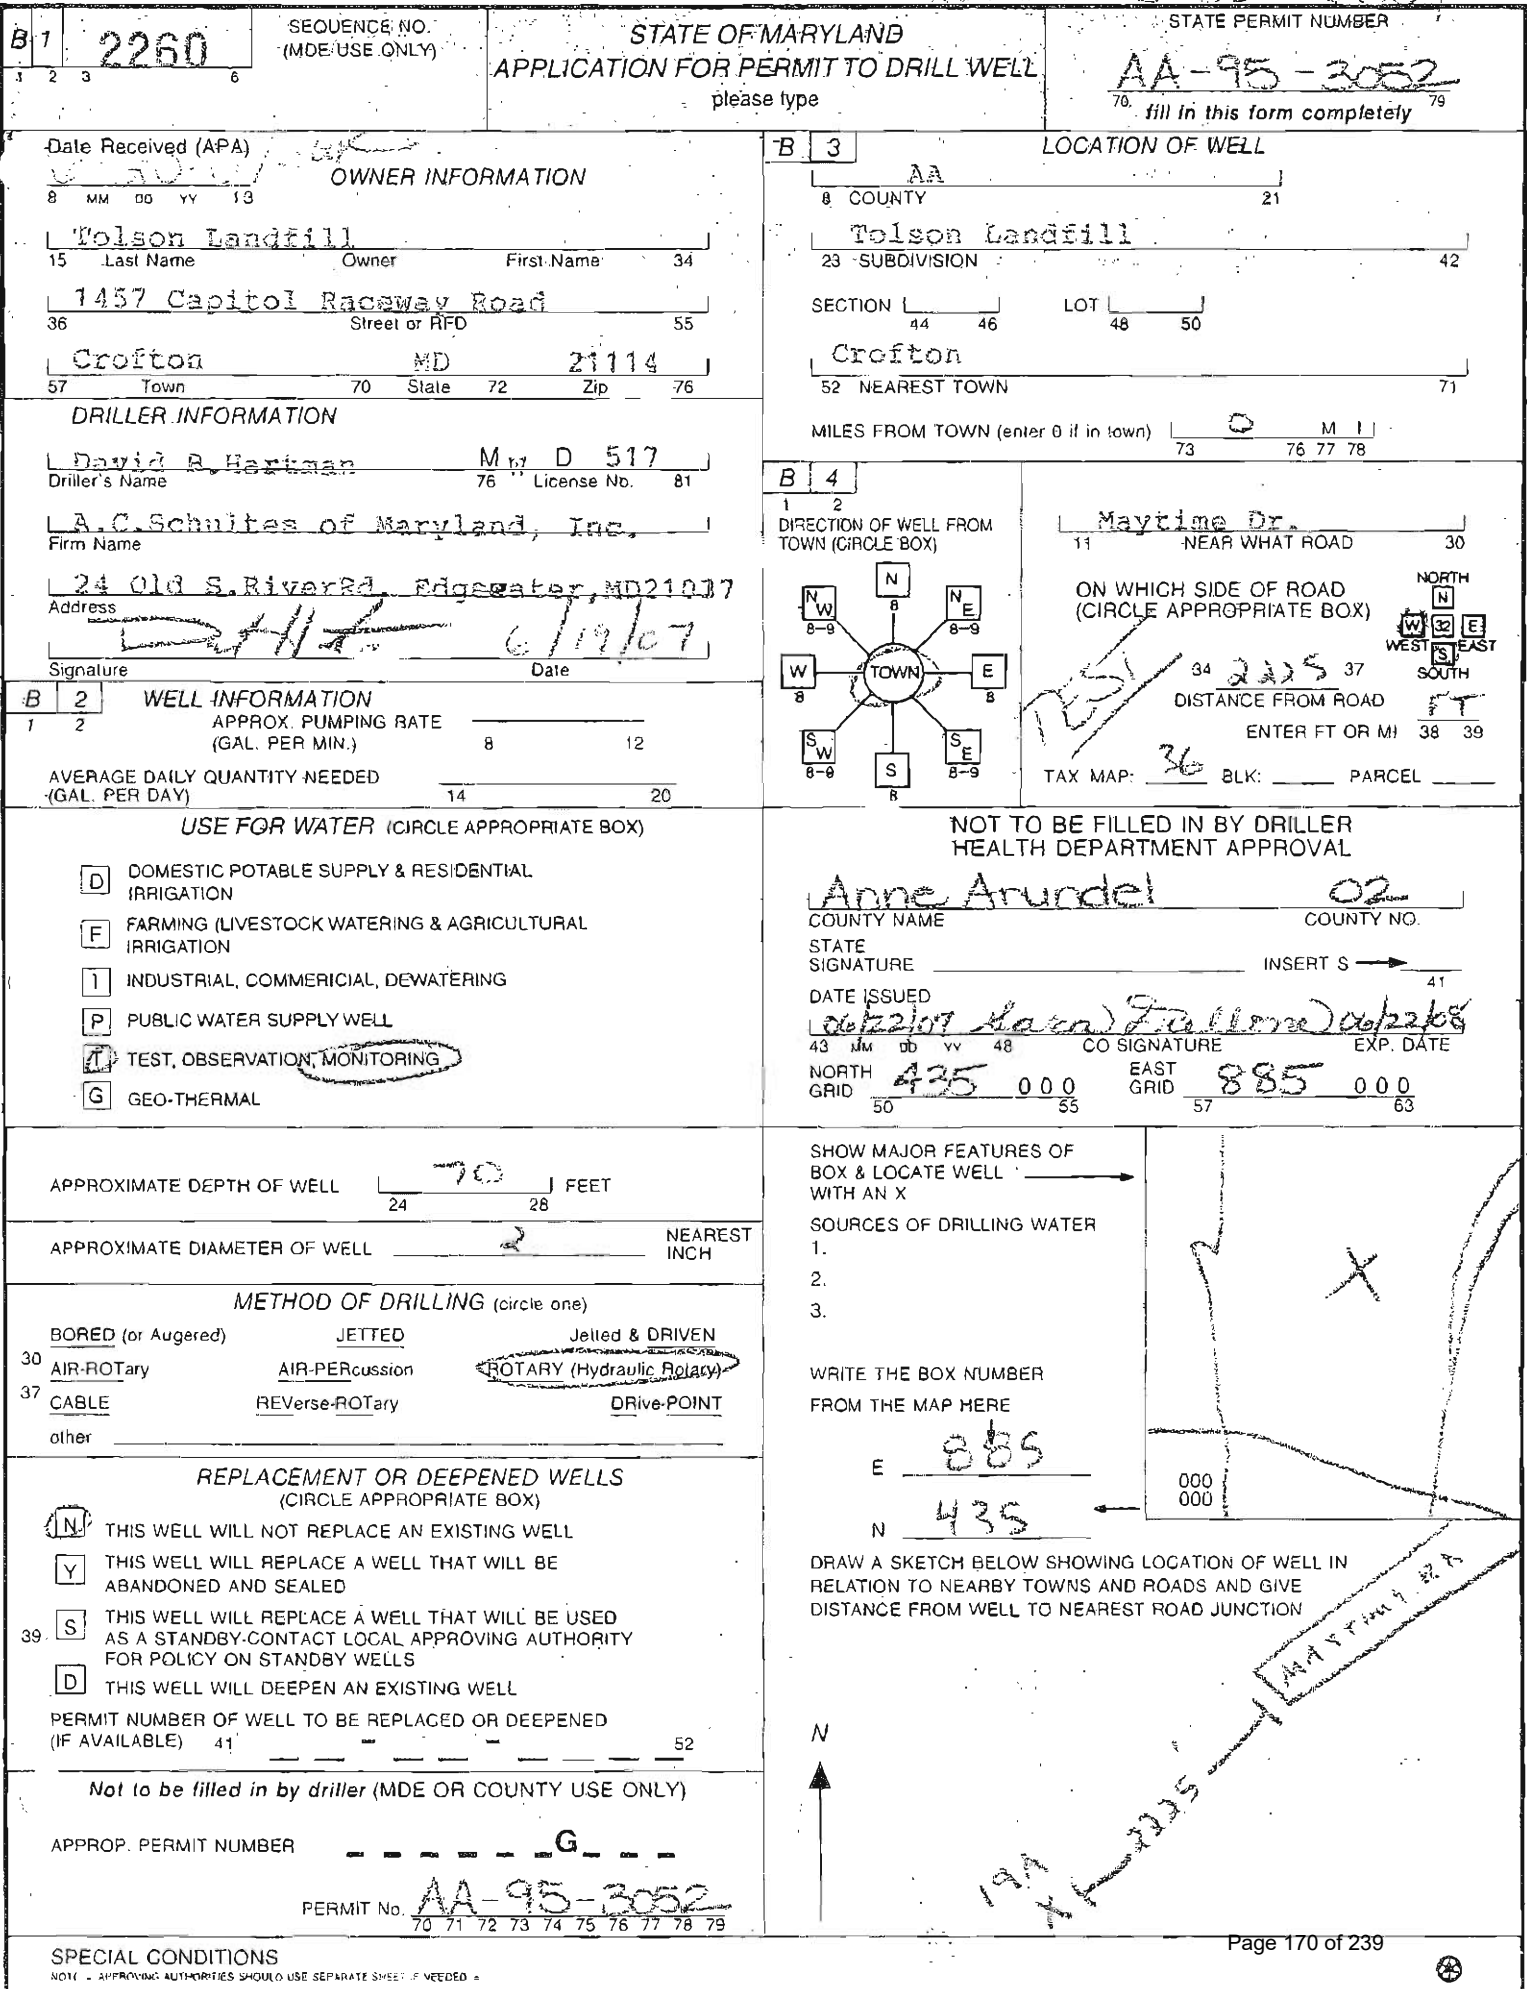 B 1 2260 SEQUENCE NO. (MDE USE ONLY)
1 2 3 6
STATE OF MARYLAND
APPLICATION FOR PERMIT TO DRILL WELL
please type
STATE PERMIT NUMBER
AA-95-3052
70 79
fill in this form completely
Date Received (APA)
8 MM DD YY 13
OWNER INFORMATION
Tolson Landfill
15 Last Name Owner First Name 34
1457 Capitol Raceway Road
36 Street or RFD 55
Crofton MD 21114
57 Town 70 State 72 Zip 76
DRILLER INFORMATION
David R.Hartman M W D 517
Driller's Name 76 License No. 81
A.C.Schultes of Maryland, Inc.
Firm Name
24 Old S.RiverRd. Edgewater,MD21037
Address
6/19/07
Signature Date
B 2 WELL INFORMATION
1 2
APPROX. PUMPING RATE
(GAL. PER MIN.) 8 12
AVERAGE DAILY QUANTITY NEEDED
(GAL. PER DAY) 14 20
USE FOR WATER (CIRCLE APPROPRIATE BOX)
D DOMESTIC POTABLE SUPPLY & RESIDENTIAL
IRRIGATION
F FARMING (LIVESTOCK WATERING & AGRICULTURAL
IRRIGATION
I INDUSTRIAL, COMMERICIAL, DEWATERING
P PUBLIC WATER SUPPLY WELL
T TEST, OBSERVATION, MONITORING
G GEO-THERMAL
APPROXIMATE DEPTH OF WELL 70 FEET
24 28
APPROXIMATE DIAMETER OF WELL 2 NEAREST
INCH
METHOD OF DRILLING (circle one)
BORED (or Augered) JETTED Jetted & DRIVEN
30 AIR-ROTary AIR-PERcussion ROTARY (Hydraulic Rotary)
37 CABLE REVerse-ROTary DRive-POINT
other
REPLACEMENT OR DEEPENED WELLS
(CIRCLE APPROPRIATE BOX)
N THIS WELL WILL NOT REPLACE AN EXISTING WELL
Y THIS WELL WILL REPLACE A WELL THAT WILL BE
ABANDONED AND SEALED
39 S THIS WELL WILL REPLACE A WELL THAT WILL BE USED
AS A STANDBY-CONTACT LOCAL APPROVING AUTHORITY
FOR POLICY ON STANDBY WELLS
D THIS WELL WILL DEEPEN AN EXISTING WELL
PERMIT NUMBER OF WELL TO BE REPLACED OR DEEPENED
(IF AVAILABLE) 41 - - 52
Not to be filled in by driller (MDE OR COUNTY USE ONLY)
APPROP. PERMIT NUMBER G
PERMIT No. AA-95-3052
70 71 72 73 74 75 76 77 78 79
SPECIAL CONDITIONS
NOTE - APPROVING AUTHORITIES SHOULD USE SEPARATE SHEET IF NEEDED
B 3 LOCATION OF WELL
AA
8 COUNTY 21
Tolson Landfill
23 SUBDIVISION 42
SECTION LOT
44 46 48 50
Crofton
52 NEAREST TOWN 71
MILES FROM TOWN (enter 0 if in town) 0 M I
73 76 77 78
B 4
1 2
DIRECTION OF WELL FROM
TOWN (CIRCLE BOX)
N
8
NW NE
8-9 8-9
W TOWN E
8 8
SW SE
8-9 8-9
S
8
Maytime Dr.
11 NEAR WHAT ROAD 30
ON WHICH SIDE OF ROAD
(CIRCLE APPROPRIATE BOX)
NORTH
N
W 32 E
WEST S EAST
SOUTH
TEST
34 2225 37
DISTANCE FROM ROAD
ENTER FT OR MI FT
38 39
TAX MAP: 36 BLK: PARCEL
NOT TO BE FILLED IN BY DRILLER
HEALTH DEPARTMENT APPROVAL
Anne Arundel 02
COUNTY NAME COUNTY NO.
STATE
SIGNATURE INSERT S
41
DATE ISSUED
06/22/07 06/22/08
43 MM DD YY 48 CO SIGNATURE EXP. DATE
NORTH GRID 435 000 EAST GRID 885 000
50 55 57 63
SHOW MAJOR FEATURES OF
BOX & LOCATE WELL
WITH AN X
SOURCES OF DRILLING WATER
1.
2.
3.
X
WRITE THE BOX NUMBER
FROM THE MAP HERE
E 885
N 435
000
000
DRAW A SKETCH BELOW SHOWING LOCATION OF WELL IN
RELATION TO NEARBY TOWNS AND ROADS AND GIVE
DISTANCE FROM WELL TO NEAREST ROAD JUNCTION
N
2225'
19A
X
Page 170 of 239